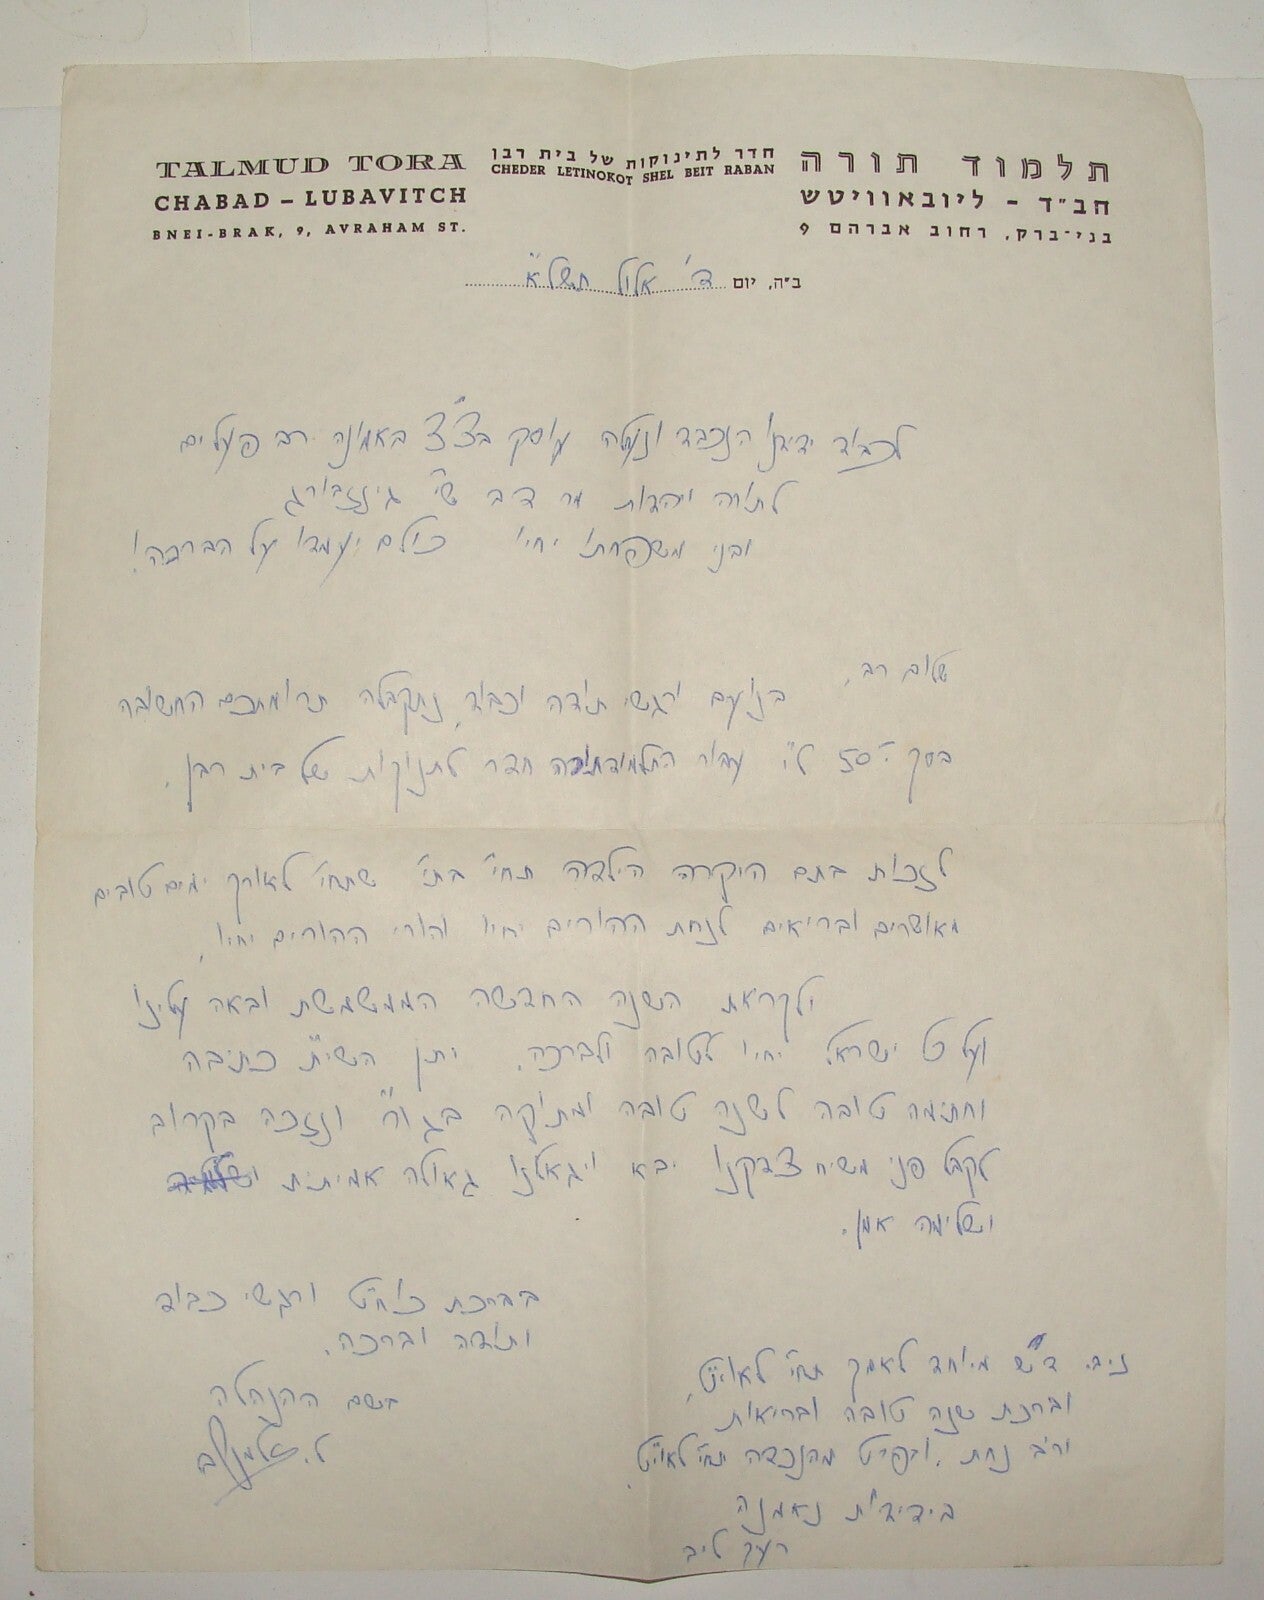 TALMUD TORA
CHABAD – LUBAVITCH
BNEI-BRAK, 9, AVRAHAM ST.
חדר לתינוקות של בית רבן
CHEDER LETINOKOT SHEL BEIT RABAN
תלמוד תורה
חב״ד - ליובאוויטש
בני־ברק, רחוב אברהם 9
ב״ה, יום ד' אלול תשל"א
לכבוד ידידנו הנכבד ונעלה עוסק בצ"צ באמונה רב פעלים
לתורה ויהדות מר דב שי' גינזבורג
ובני משפחתו יחיו כולם יעמדו על הברכה!
שלום רב,
בנועם ורגשי תודה וכבוד, נתקבלה תרומתכם החשובה
בסך 50 ל"י עבור התלמוד תורה חדר לתנוקות של בית רבן.
לזכות בתם היקרה הילדה תחי' שתחי' לאורך ימים טובים
מאושרים ובריאים לנחת ההורים יחיו והורי ההורים יחיו,
ולקראת השנה החדשה הממשמשת ובאה עלינו
ועל כל ישראל יחיו לטובה ולברכה. יתן השי"ת כתיבה
וחתימה טובה לשנה טובה ומתוקה בגו"ר ונזכה בקרוב
לקבל פני משיח צדקנו יבא ויגאלנו גאולה אמיתית
ושלימה אמן.
בברכת כוח"ט ורגשי כבוד
ותודה וברכה.
בשם ההנהלה
ל. זלמנוב
נ.ב. ד"ש מיוחד לאמך תחי' לאוי"ט,
וברכת שנה טובה ובריאות
ורב נחת, ובפרט מהנכדה תחי' לאוי"ט.
בידידות נאמנה
ליב